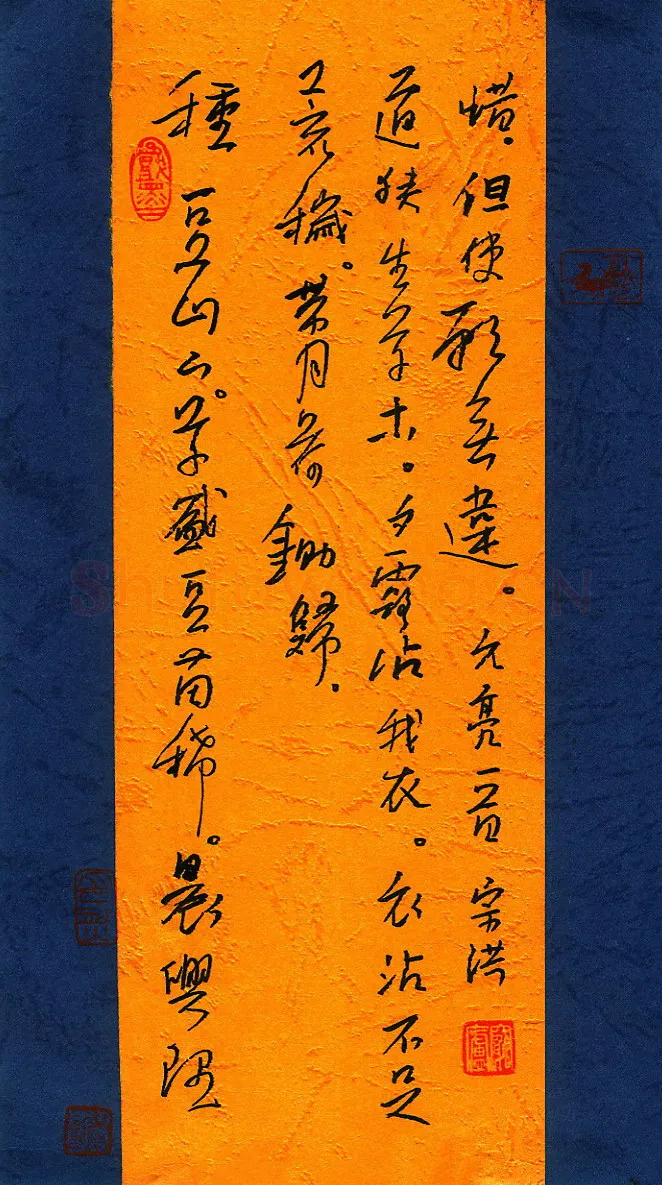 種豆南山下。草盛豆苗稀。晨興理
荒穢。帶月荷鋤歸.
道狹生草木。夕露沾我衣。衣沾不足
惜.但使願無違。元亮一首 宗洪